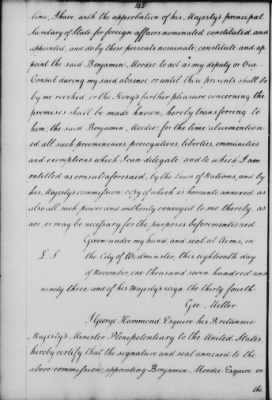 tions, I have with the approbation of his Majesty's principal
Secretary of State for foreign affairs nominated constituted and
appointed, and do by these presents nominate, constitute and ap
point the said Benjamin Moodie to act as my deputy or Vice
Consul during my said absence or until these presents shall be
by me revoked or the King's further pleasure concerning the
premises shall be made known, hereby transferring to
him, the said Benjamin Moodie, for the time abovemention
ed all such preeminences, prerogatives, liberties, immunities
and exemptions which I can delegate and to which I am
entitled as consul aforesaid, by the Laws of Nations, and by
his Majesty's commission copy of which is hereunto annexed as
also all such power and authority conveyed to me thereby, as
are or may be necessary for the purposes beforementioned.
Given under my hand and seal at Arms, in
L. S. the City of Westminster, this eighteenth day
of November, one thousand seven hundred and
ninety three and of his Majesty's reign the thirty fourth
Geo. Miller
I George Hammond Esquire his Britannic
Majesty's Minister Plenipotentiary to the United States,
hereby certify that the signature and seal annexed to the
above commission appointing Benjamin Moodie Esquire on
the